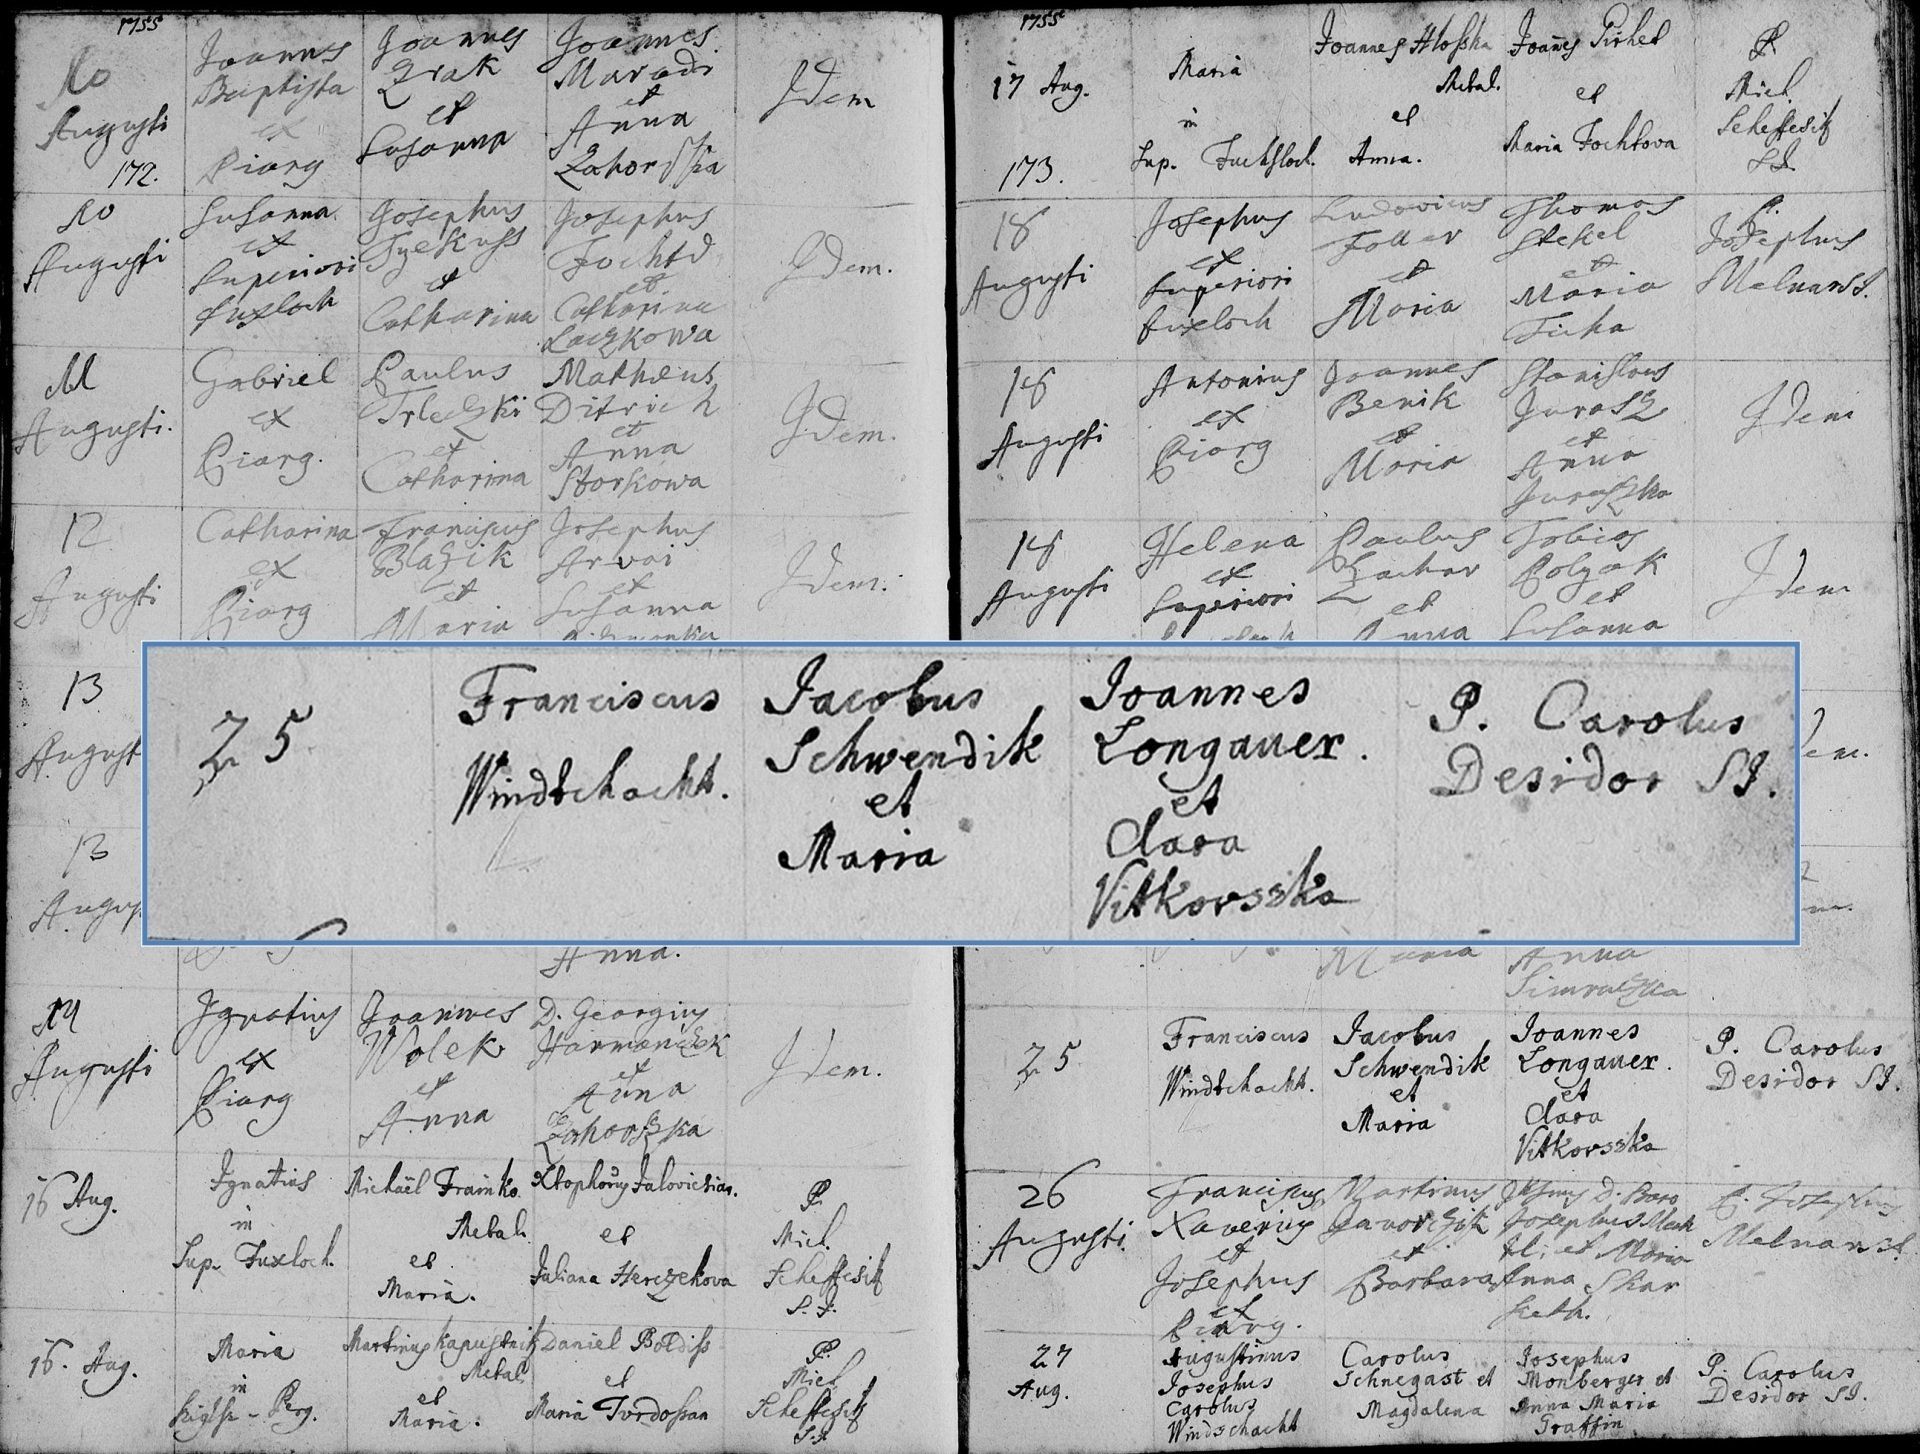 1755
10
Augusti
172.
Joannes
Baptista
ex
Piarg
Joannes
Zrak
et
Susanna
Joannes
Maradi
et
Anna
Zahorszka
Idem
10
Augusti
Susanna
ex
Superiori
fuxloch
Josephus
et
Catharina
Josephus
Fochtd
et
Catharina
Laczkowa
Idem.
11
Augusti.
Gabriel
ex
Piarg.
Paulus
Trleczki
et
Catharina
Matheus
Ditrich
et
Anna
Storkowa
Idem.
12
Augusti
Catharina
ex
Piarg
Franciscus
Blazik
et
Maria
Josephus
Arvai
et
Susanna
Idem.
13
August
13
Anna.
14
Augusti
Ignatius
ex
Piarg
Joannes
Wolek
et
Anna
D. Georgius
Harmanczek
et
Anna
Zahorszka
Idem.
16 Aug.
Ignatius
in
Sup. Fuxloch.
Michaël Frainko
Metal.
et
Maria.
et
Juliana Herczekova
P.
Mich.
Scheffesik
S.J.
16. Aug.
Maria
in
Martinus Kapustnik
Metal.
et
Maria.
Daniel Boldiss
et
Maria Turdossan
P.
Mich.
Scheffesik
S.J.
1755
17 Aug.
173.
Maria
in
Sup. Fuchsloch.
Joannes Hlosska
Metal.
et
Anna.
Joannes Pirhel
et
Maria Fochtova
P.
Mich.
Scheffesik
S.J.
18
Augusti
Josephus
ex
Superiori
fuxloch
Ludovicus
Foller
et
Maria
Thomas
Stekel
et
Maria
Ticha
P.
Josephus
18
Augusti
Antonius
ex
Piarg
Joannes
Benik
et
Maria
Stanislaus
Jurasz
et
Anna
Juraszka
Idem
18
Augusti
Helena
ex
Superiori
Paulus
Zachar
et
Anna
Tobias
Polyak
et
Susanna
Idem
25
Franciscus
Windtschacht.
Jacobus
Schwendik
et
Maria
Joannes
Longauer.
et
Clara
Vitkovszka
P. Carolus
Desidor SJ.
Maria
Anna
25
Franciscus
Windtschacht.
Jacobus
Schwendik
et
Maria
Joannes
Longauer.
et
Clara
Vitkovszka
P. Carolus
Desidor SJ.
26
Augusti.
Franciscus
Xaverius
et
Josephus
ex
Piarg.
Martinus
et
Barbara
P. Josephus
27
Aug.
Augustinus
Josephus
Carolus
Windschacht
Carolus
Schnegast et
Magdalena
Josephus
Monberger et
Anna Maria
Graffin
P. Carolus
Desidor SJ.